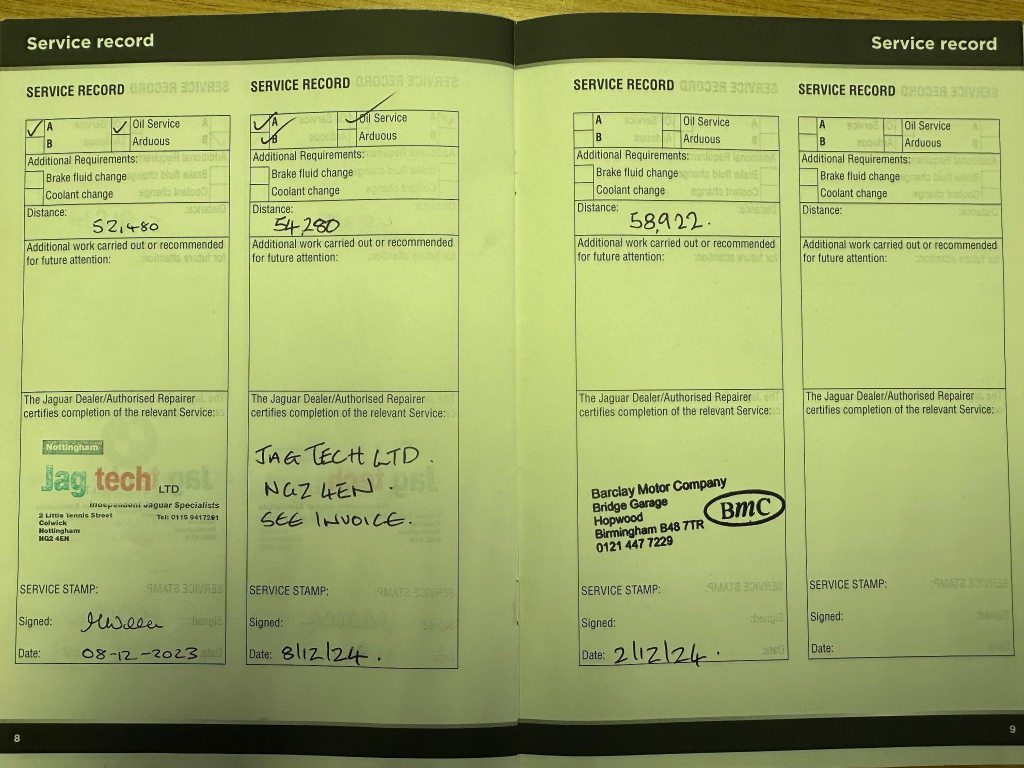 Service record
SERVICE RECORD
A
Oil Service
B
Arduous
Additional Requirements:
Brake fluid change
Coolant change
Distance:
52,480
Additional work carried out or recommended
for future attention:
The Jaguar Dealer/Authorised Repairer
certifies completion of the relevant Service:
Nottingham
Jag tech LTD
Independent Jaguar Specialists
2 Little Tennis Street
Colwick
Nottingham
NG2 4EN
Tel: 0115 9417291
SERVICE STAMP:
Signed:
Date: 08-12-2023
SERVICE RECORD
A
Oil Service
B
Arduous
Additional Requirements:
Brake fluid change
Coolant change
Distance:
54,280
Additional work carried out or recommended
for future attention:
The Jaguar Dealer/Authorised Repairer
certifies completion of the relevant Service:
JAG TECH LTD.
NG2 4EN.
SEE INVOICE.
SERVICE STAMP:
Signed:
Date: 8/12/24.
8
Service record
SERVICE RECORD
A
Oil Service
B
Arduous
Additional Requirements:
Brake fluid change
Coolant change
Distance:
58,922.
Additional work carried out or recommended
for future attention:
The Jaguar Dealer/Authorised Repairer
certifies completion of the relevant Service:
Barclay Motor Company
Bridge Garage
Hopwood
Birmingham B48 7TR
0121 447 7229
BMC
SERVICE STAMP:
Signed:
Date: 2/12/24.
SERVICE RECORD
A
Oil Service
B
Arduous
Additional Requirements:
Brake fluid change
Coolant change
Distance:
Additional work carried out or recommended
for future attention:
The Jaguar Dealer/Authorised Repairer
certifies completion of the relevant Service:
SERVICE STAMP:
Signed:
Date:
9